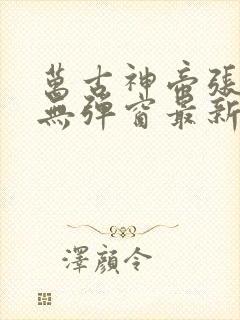 萬古神帝張
無彈窗最新
澤顏令